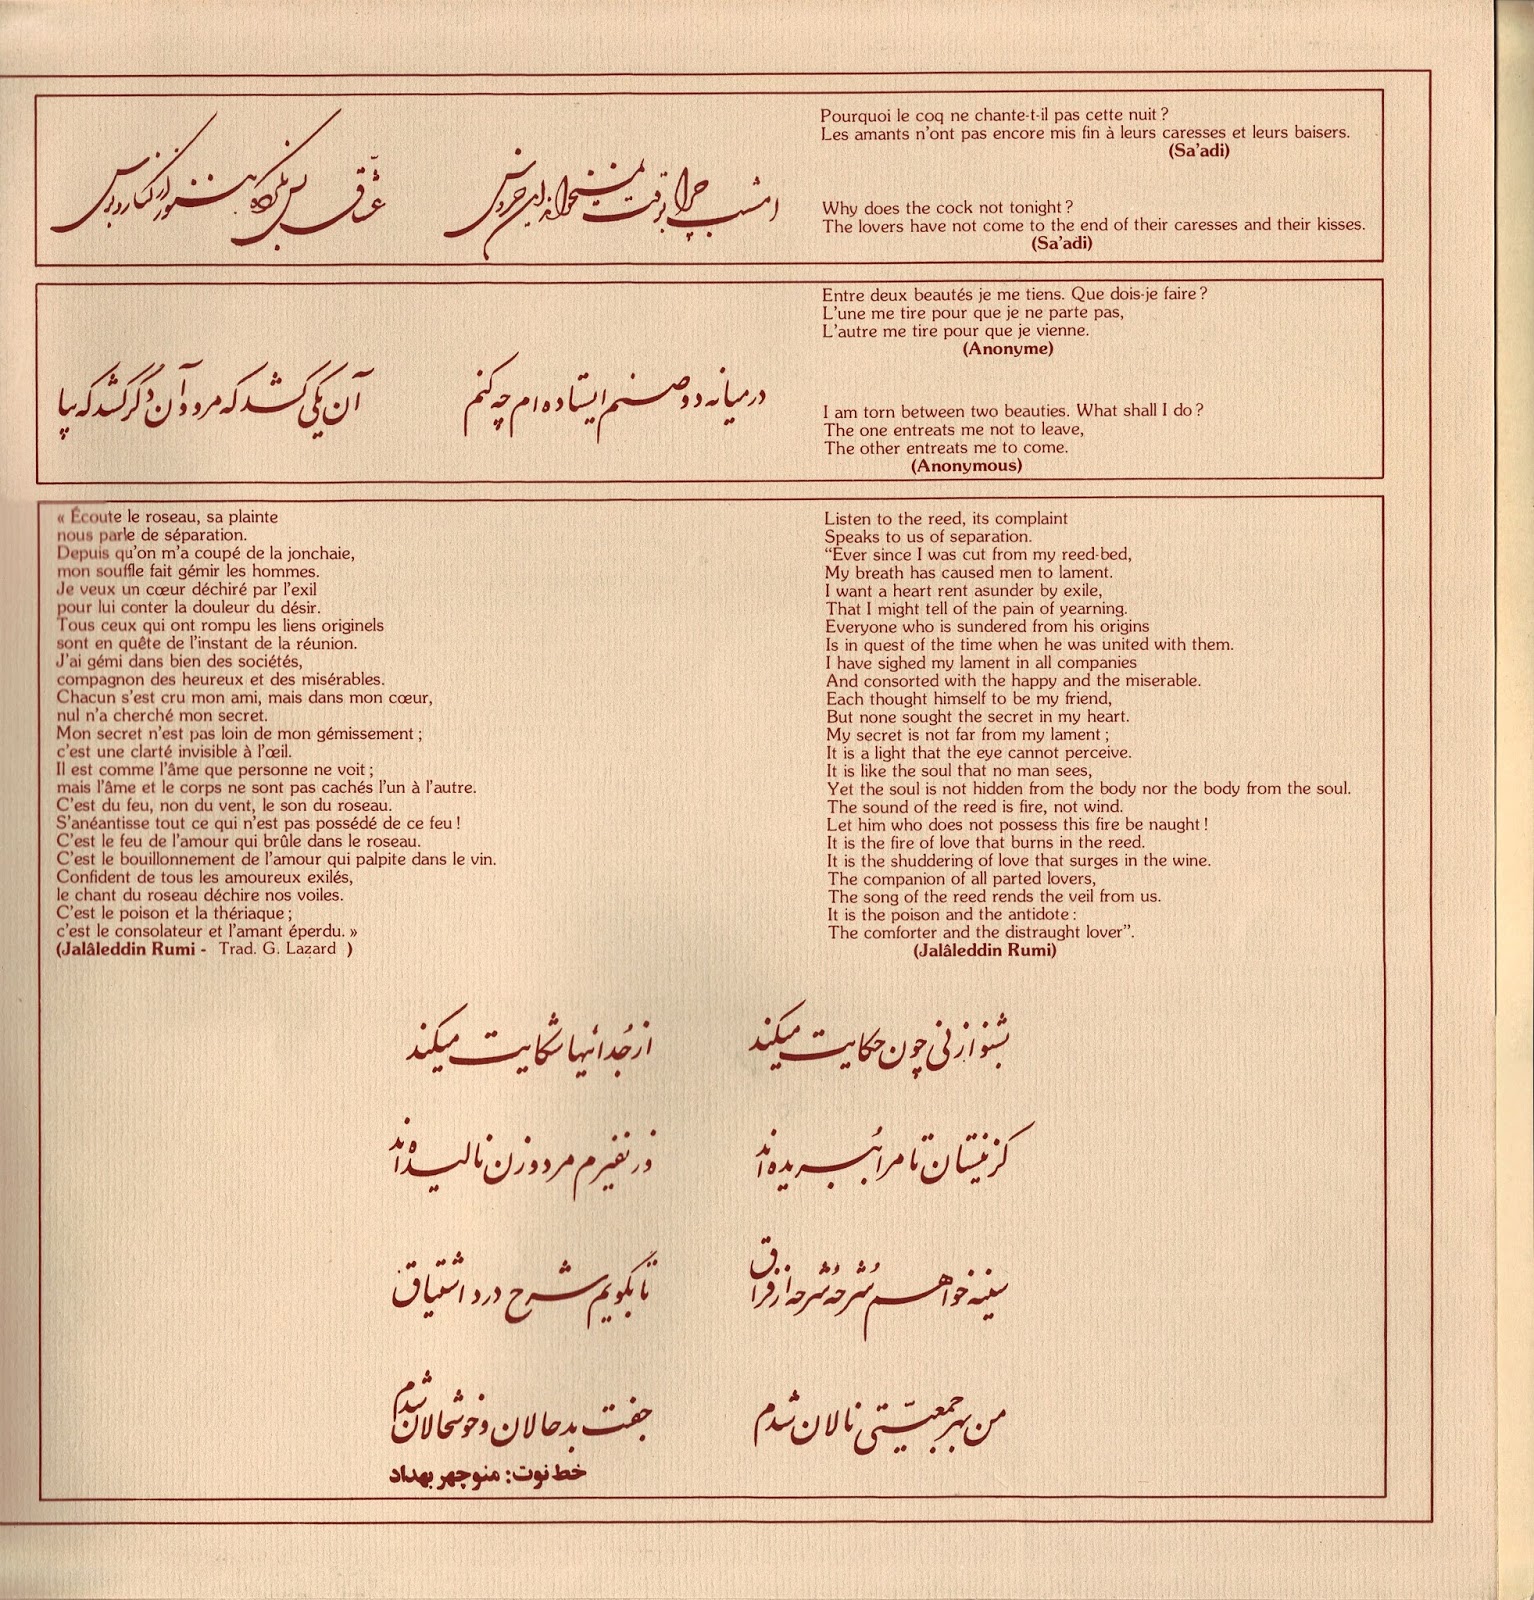 Pourquoi le coq ne chante-t-il pas cette nuit ?
Les amants n'ont pas encore mis fin à leurs caresses et leurs baisers.
(Sa'adi)
Why does the cock not tonight ?
The lovers have not come to the end of their caresses and their kisses.
(Sa'adi)
امشب چرا بوقت نمیخواند این خروس
عشّاق بس نکرده هنوز از کنار و بوس
Entre deux beautés je me tiens. Que dois-je faire ?
L'une me tire pour que je ne parte pas,
L'autre me tire pour que je vienne.
(Anonyme)
I am torn between two beauties. What shall I do ?
The one entreats me not to leave,
The other entreats me to come.
(Anonymous)
درمیانه دو صنم ایستاده ام چه کنم
آن یکی کشد که مرو وآن دگر کشد که بیا
« Écoute le roseau, sa plainte
nous parle de séparation.
Depuis qu'on m'a coupé de la jonchaie,
mon souffle fait gémir les hommes.
Je veux un cœur déchiré par l'exil
pour lui conter la douleur du désir.
Tous ceux qui ont rompu les liens originels
sont en quête de l'instant de la réunion.
J'ai gémi dans bien des sociétés,
compagnon des heureux et des misérables.
Chacun s'est cru mon ami, mais dans mon cœur,
nul n'a cherché mon secret.
Mon secret n'est pas loin de mon gémissement ;
c'est une clarté invisible à l'œil.
Il est comme l'âme que personne ne voit ;
mais l'âme et le corps ne sont pas cachés l'un à l'autre.
C'est du feu, non du vent, le son du roseau.
S'anéantisse tout ce qui n'est pas possédé de ce feu !
C'est le feu de l'amour qui brûle dans le roseau.
C'est le bouillonnement de l'amour qui palpite dans le vin.
Confident de tous les amoureux exilés,
le chant du roseau déchire nos voiles.
C'est le poison et la thériaque ;
c'est le consolateur et l'amant éperdu. »
(Jalâleddin Rumi - Trad. G. Lazard )
Listen to the reed, its complaint
Speaks to us of separation.
“Ever since I was cut from my reed-bed,
My breath has caused men to lament.
I want a heart rent asunder by exile,
That I might tell of the pain of yearning.
Everyone who is sundered from his origins
Is in quest of the time when he was united with them.
I have sighed my lament in all companies
And consorted with the happy and the miserable.
Each thought himself to be my friend,
But none sought the secret in my heart.
My secret is not far from my lament ;
It is a light that the eye cannot perceive.
It is like the soul that no man sees,
Yet the soul is not hidden from the body nor the body from the soul.
The sound of the reed is fire, not wind.
Let him who does not possess this fire be naught !
It is the fire of love that burns in the reed.
It is the shuddering of love that surges in the wine.
The companion of all parted lovers,
The song of the reed rends the veil from us.
It is the poison and the antidote :
The comforter and the distraught lover”.
(Jalâleddin Rumi)
بشنو از نی چون حکایت میکند
از جُدائیها شکایت میکند
کز نیستان تا مرا ببُریده اند
وز نفیرم مرد و زن نالیده اند
سینه خواهم شُرحه شُرحه از فراق
تا بگویم شرح درد اشتیاق
من بهر جمعیّتی نالان شدم
جفت بدحالان و خوشحالان شدم
خط نوت: منوچهر بهداد